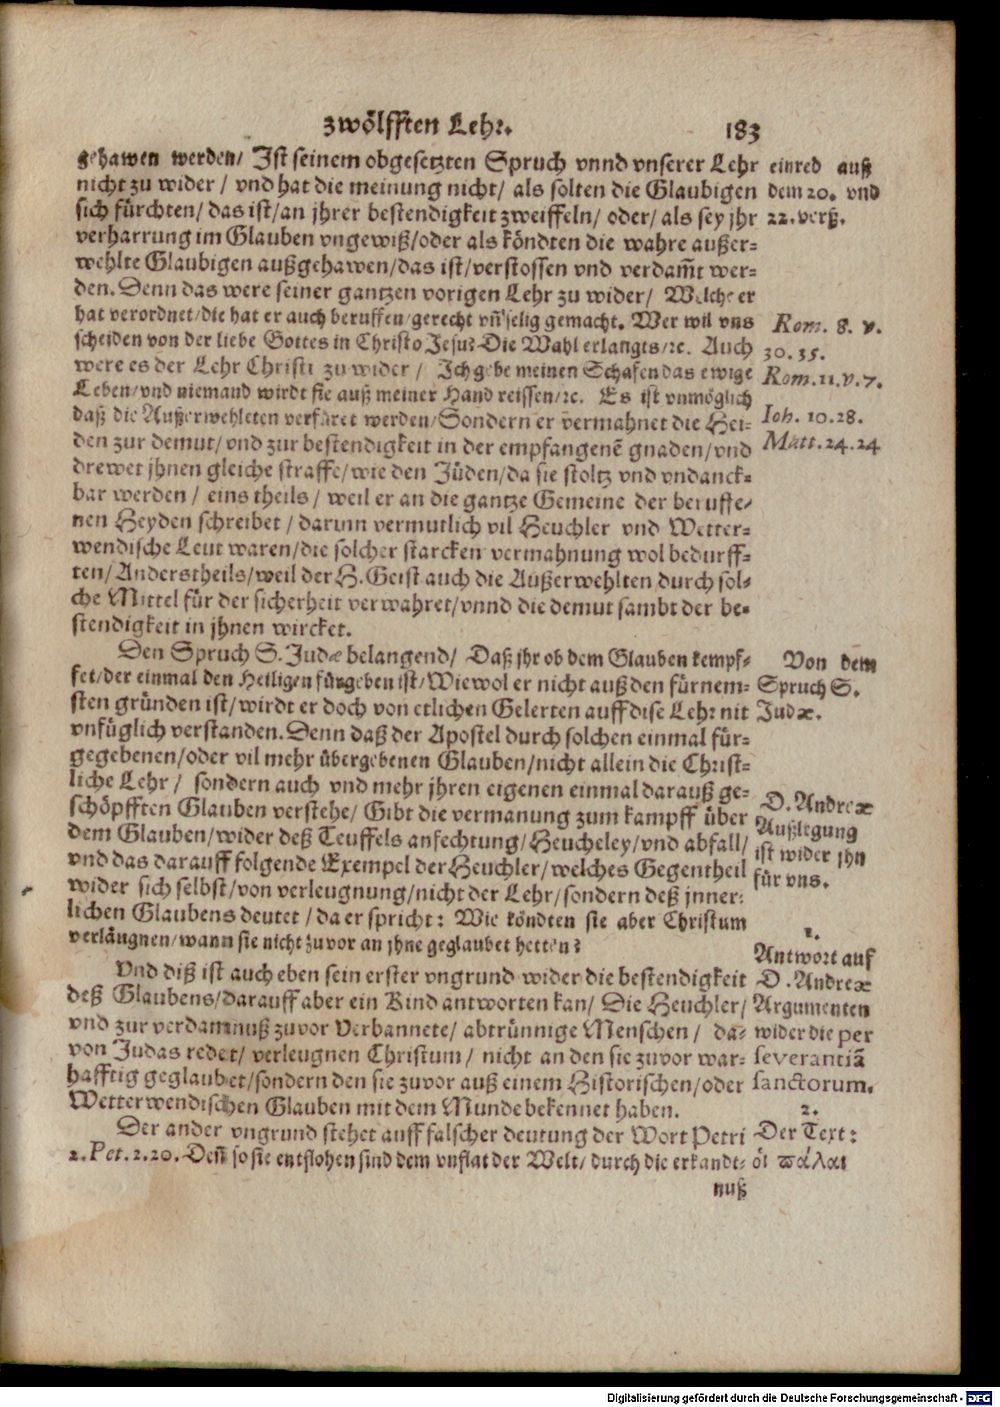 zwölfften Lehr.
183
gehawen werden/ Ist seinem obgesetzten Spruch vnnd vnserer Lehr
nicht zu wider / vnd hat die meinung nicht/ als solten die Glaubigen
sich fürchten/ das ist/ an jhrer bestendigkeit zweiffeln/ oder/ als sey jhr
verharrung im Glauben vngewiß/ oder als köndten die wahre außer=
wehlte Glaubigen außgehawen/ das ist/ verstossen vnd verdam̃t wer=
den. Denn das were seiner gantzen vorigen Lehr zu wider/ Welche er
hat verordnet/ die hat er auch beruffen/ gerecht vñ selig gemacht. Wer wil vns
scheiden von der liebe Gottes in Christo Jesu? Die Wahl erlangts/ ꝛc. Auch
were es der Lehr Christi zu wider / Ich gebe meinen Schafen das ewige
Leben/ vnd niemand wirdt sie auß meiner Hand reissen/ ꝛc. Es ist vnmöglich
daß die Außerwehleten verfüret werden/ Sondern er vermahnet die Hei=
den zur demut/ vnd zur bestendigkeit in der empfangenē gnaden/ vnd
drewet jhnen gleiche straffe/ wie den Jüden/ da sie stoltz vnd vndanck=
bar werden / eins theils / weil er an die gantze Gemeine der beruffe=
nen Heyden schreibet / darunn vermutlich vil Heuchler vnd Wetter=
wendische Leut waren/ die solcher starcken vermahnung wol bedurff=
ten/ Anderstheils/ weil der H. Geist auch die Außerwehlten durch sol=
che Mittel für der sicherheit verwahret/ vnnd die demut sambt der be=
stendigkeit in jhnen wircket.
Den Spruch S. Judæ belangend/ Daß jhr ob dem Glauben kempf=
fet/ der einmal den Heiligen fürgeben ist/ Wiewol er nicht auß den fürnem=
sten gründen ist/ wirdt er doch von etlichen Gelerten auff dise Lehr nit
vnfüglich verstanden. Denn daß der Apostel durch solchen einmal für=
gegebenen/ oder vil mehr übergebenen Glauben/ nicht allein die Christ=
liche Lehr / sondern auch vnd mehr jhren eigenen einmal darauß ge=
schöpfften Glauben verstehe/ Gibt die vermanung zum kampff über
dem Glauben/ wider deß Teuffels anfechtung/ Heucheley/ vnd abfall/
vnd das darauff folgende Exempel der Heuchler/ welches Gegentheil
wider sich selbst/ von verleugnung/ nicht der Lehr/ sondern deß jnner=
lichen Glaubens deutet / da er spricht: Wie köndten sie aber Christum
verläugnen/ wann sie nicht zuvor an jhne geglaubet hetten?
Vnd diß ist auch eben sein erster vngrund wider die bestendigkeit
deß Glaubens/ darauff aber ein Kind antworten kan/ Die Heuchler/
vnd zur verdamnuß zuvor Verbannete/ abtrünnige Menschen / da=
von Judas redet/ verleugnen Christum / nicht an den sie zuvor war=
hafftig geglaubet/ sondern den sie zuvor auß einem Historischen/ oder
Wetterwendischen Glauben mit dem Munde bekennet haben.
Der ander vngrund stehet auff falscher deutung der Wort Petri
2. Pet. 2. 20. Deñ so sie entflohen sind dem vnflat der Welt/ durch die erkandt=
nuß
einred auß
dem 20. vnd
22. verß.
Rom. 8. v.
30. 35.
Rom. 11. v. 7.
Ioh. 10. 28.
Matt. 24. 24
Von dem
Spruch S.
Judæ.
D. Andreæ
Außlegung
ist wider jhn
für vns.
1.
Antwort auf
D. Andreæ
Argumenten
wider die per
severantiā
sanctorum.
2.
Der Text:
ὁι πάλαι
Digitalisierung gefördert durch die Deutsche Forschungsgemeinschaft - DFG